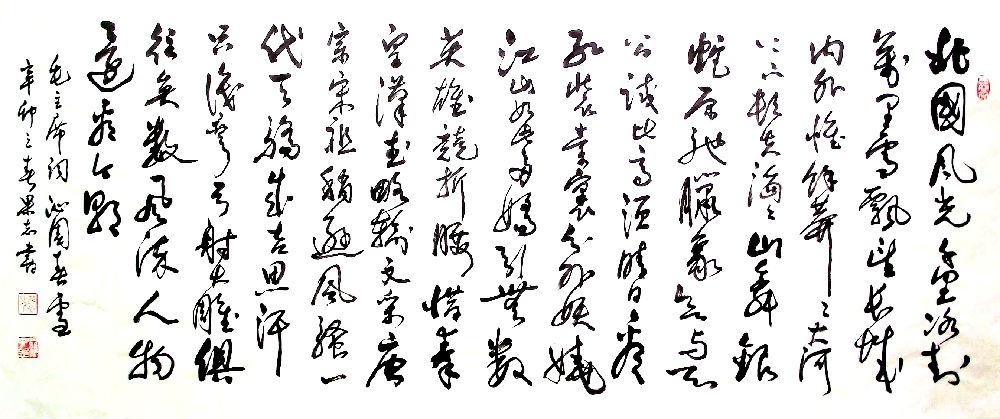 北國風光千里冰封
萬里雪飄望長城
内外惟餘莽〻大河
上下頓失滔〻山舞銀
蛇原馳臘象欲与天
公試比高須晴日看
紅裝素裹分外妖嬈
江山如此多嬌引無數
英雄競折腰惜秦
皇漢武略輸文采唐
宗宋祖稍遜風騷一
代天驕成吉思汗
只識彎弓射大雕俱
往矣數風流人物
還看今朝
毛主席詞沁園春雪
辛卯之春果志書